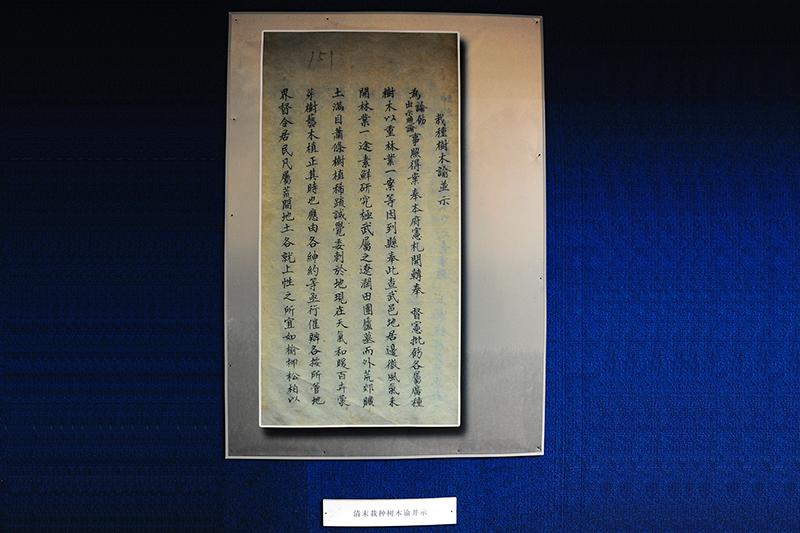 151
栽種樹木諭並示
為諭飭出示曉諭事照得案奉本府憲札開轉奉　督憲批飭各屬廣種
樹木以重林業一案等因到縣奉此查武邑地居邊徼風氣未
開林業一途素鮮研究極武屬之遼濶田園廬墓而外荒郊曠
土滿目蕭條樹植稀疏誠覺委利於地現在天氣和暖百卉蒙
芽樹藝木植正其時也應由各紳約等亟行催辦各按所管地
界督令居民凡屬荒閒地土各就土性之所宜如榆柳松柏以
清末栽种树木谕并示